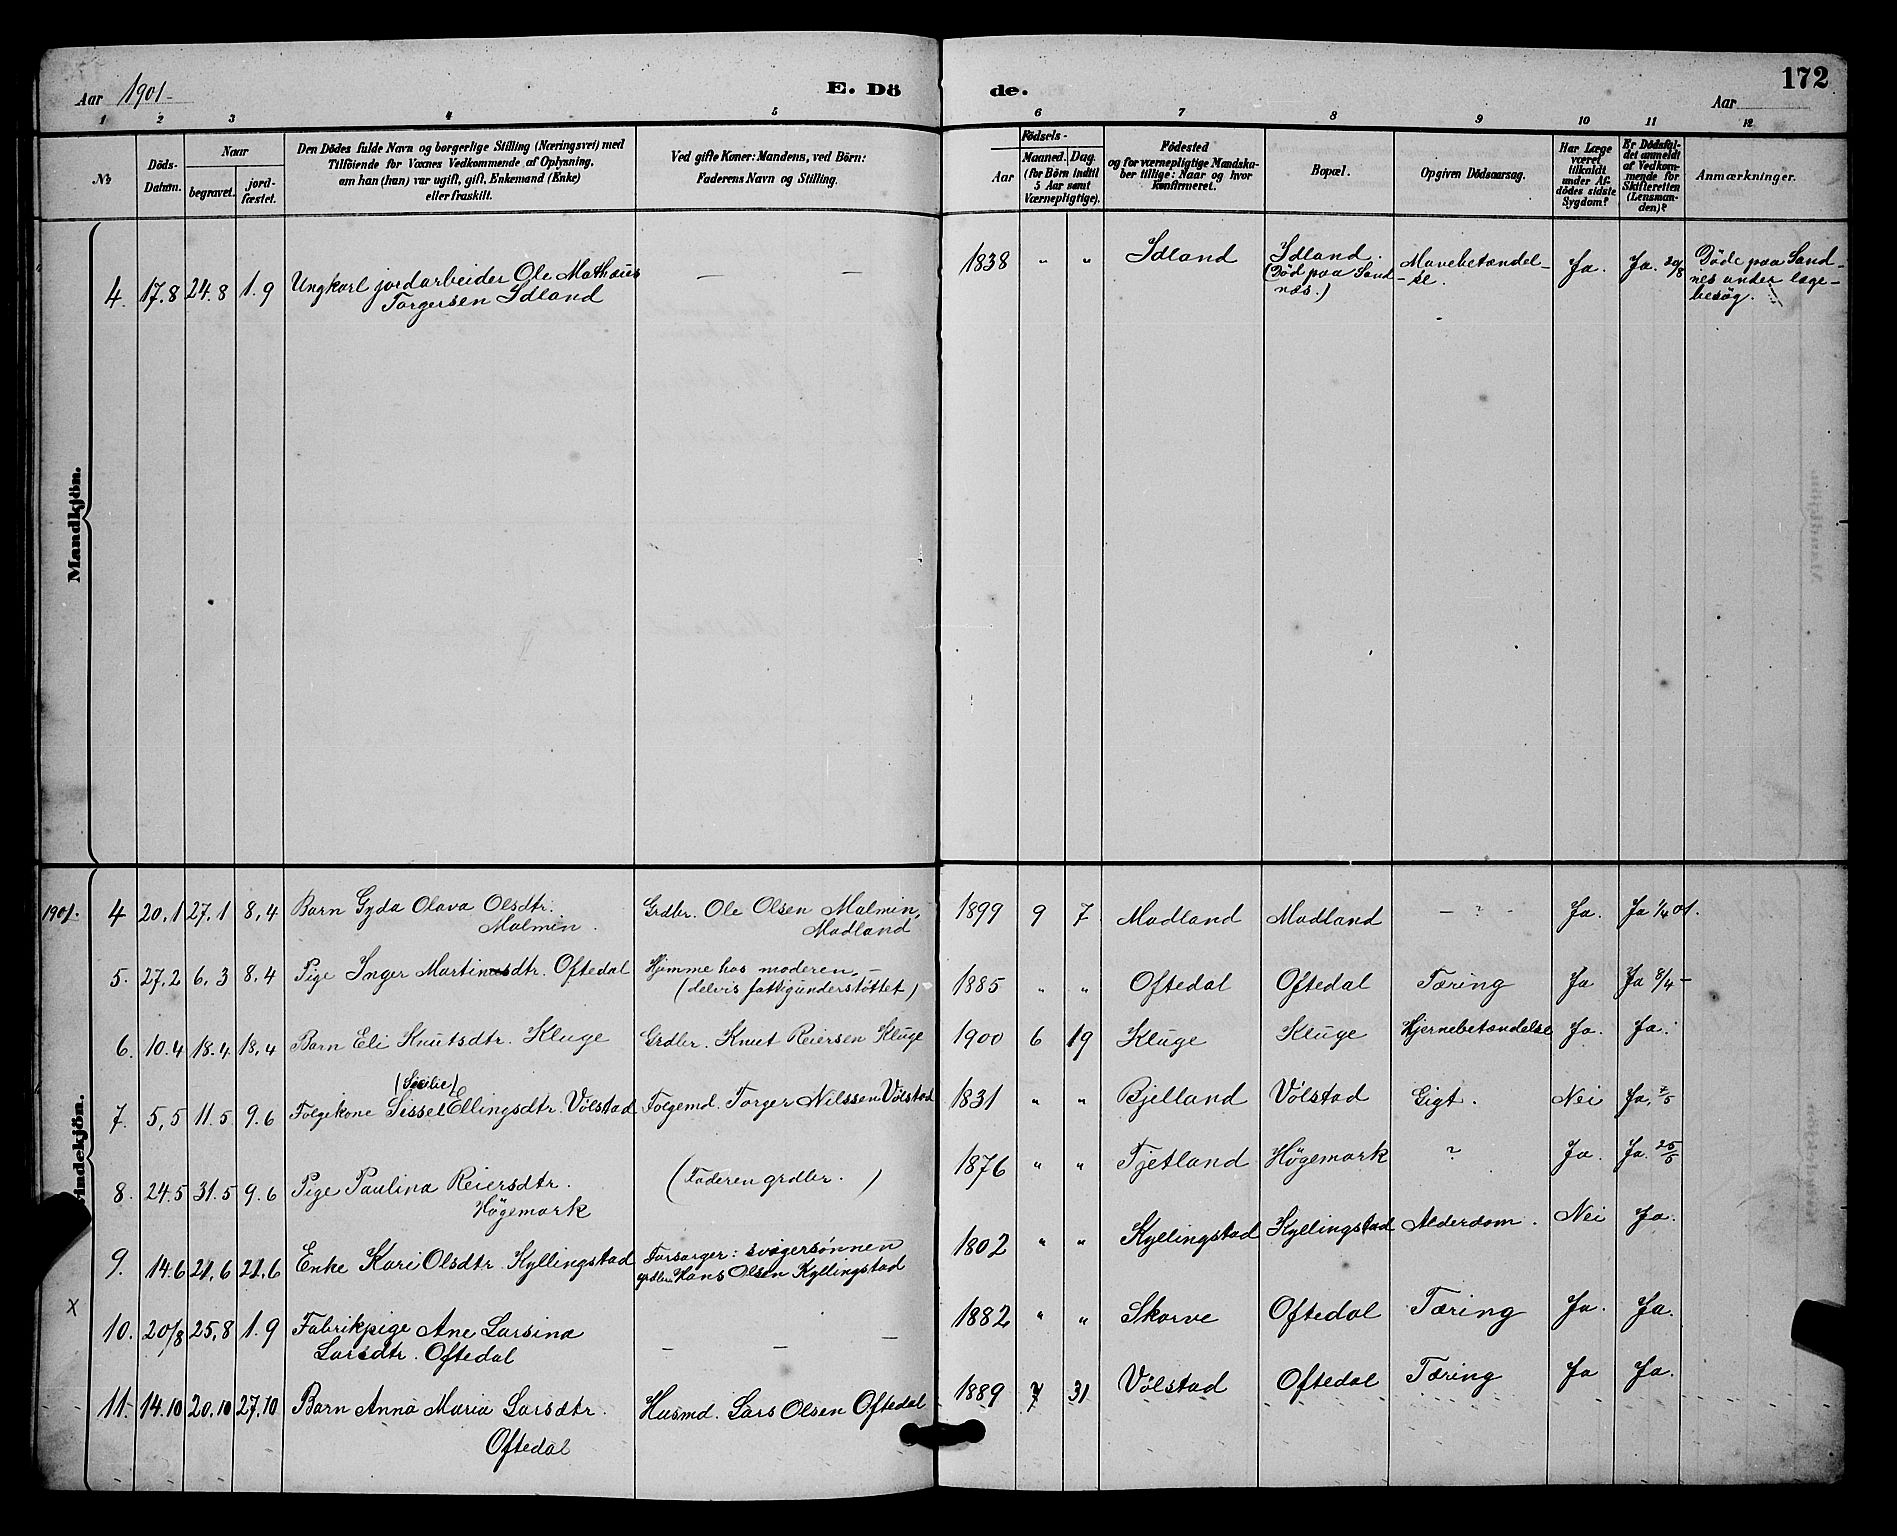 Aar 1901- E. Dö de. Aar 172
1 2 3 4 5 6 7 8 9 10 11 12
№ Döds-Datum. Naar begravet. jord-fæstet. Den Dödes fulde Navn og borgerlige Stilling (Næringsvei) med Tilföiende for Voxnes Vedkommende af Oplysning, om han (hun) var ugift, gift, Enkemand (Enke) eller fraskilt. Ved gifte Koner: Mandens, ved Börn: Faderens Navn og Stilling. Födsels- Aar Maaned. Dag. (for Börn indtil 5 Aar samt Værnepligtige). Födested og for værnepligtige Mandskaber tillige: Naar og hvor Konfirmeret. Bopæl. Opgiven Dödsaarsag. Har Læge været tilkaldt under Afdödes sidste Sygdom? Er Dödsfaldet anmeldt af Vedkommende for Skifteretten (Lensmanden)? Anmærkninger.
Mandkjön.
4. 17.8 24.8 1.9 Ungkarl jordarbeider Ole Mathæus Torgersen Idland — — 1838 " " Idland Idland. (Död paa Sandnæs.) Mavebetændel-se. Ja. Ja. 20/8 Døde paa Sand-nes under læge-besøg.
Kvindekjön.
1901. 4 20.1 27.1 8.4 Barn Gyda Olava Olsdtr. Malmin. Grdbr. Ole Olsen Malmin, Madland 1899 9 7 Madland Madland - ? - Ja. Ja 1/4 01.
5. 27.2 6.3 8.4 Pige Inger Martinusdtr. Oftedal Hjemme hos moderen, - (delvis fattigunderstöttet) 1885 " " Oftedal Oftedal Tæring Ja Ja 8/4 -
6. 10.4 18.4 18.4 Barn Eli Knutsdtr. Kluge Grdbr. Knut Reiersen Kluge 1900 6 19 Kluge Kluge Hjernebetændelse Ja. Ja.
7. 5.5 11.5 9.6 Folgekone Sissel (Sicilie) Ellingsdtr. Völstad Folgemd. Torger Nilssen Völstad 1831 " " Bjelland Völstad Gigt. Nei Ja. 7/5
8. 24.5 31.5 9.6 Pige Paulina Reiersdtr. Högemark (Faderen grdbr. ) 1876 " " Tjetland Høgemark ? Ja. Ja. 25/5
9. 14.6 21.6 21.6 Enke Kari Olsdtr. Kyllingstad Forsorger: svogersønnen grdbr. Hans Olsen Kyllingstad 1802 " " Kyllingstad Kyllingstad Alderdom. Nei Ja.
X 10. 20/8 25.8 1.9 Fabrikpige Ane Larsina Larsdtr. Oftedal — — — 1882 " " Skorve Oftedal Tæring Ja. Ja.
11. 14.10 20.10 27.10 Barn Anna Maria Larsdtr. Oftedal Husmd. Lars Olsen Oftedal 1889 7 31 Völstad Oftedal Tæring Ja Ja.